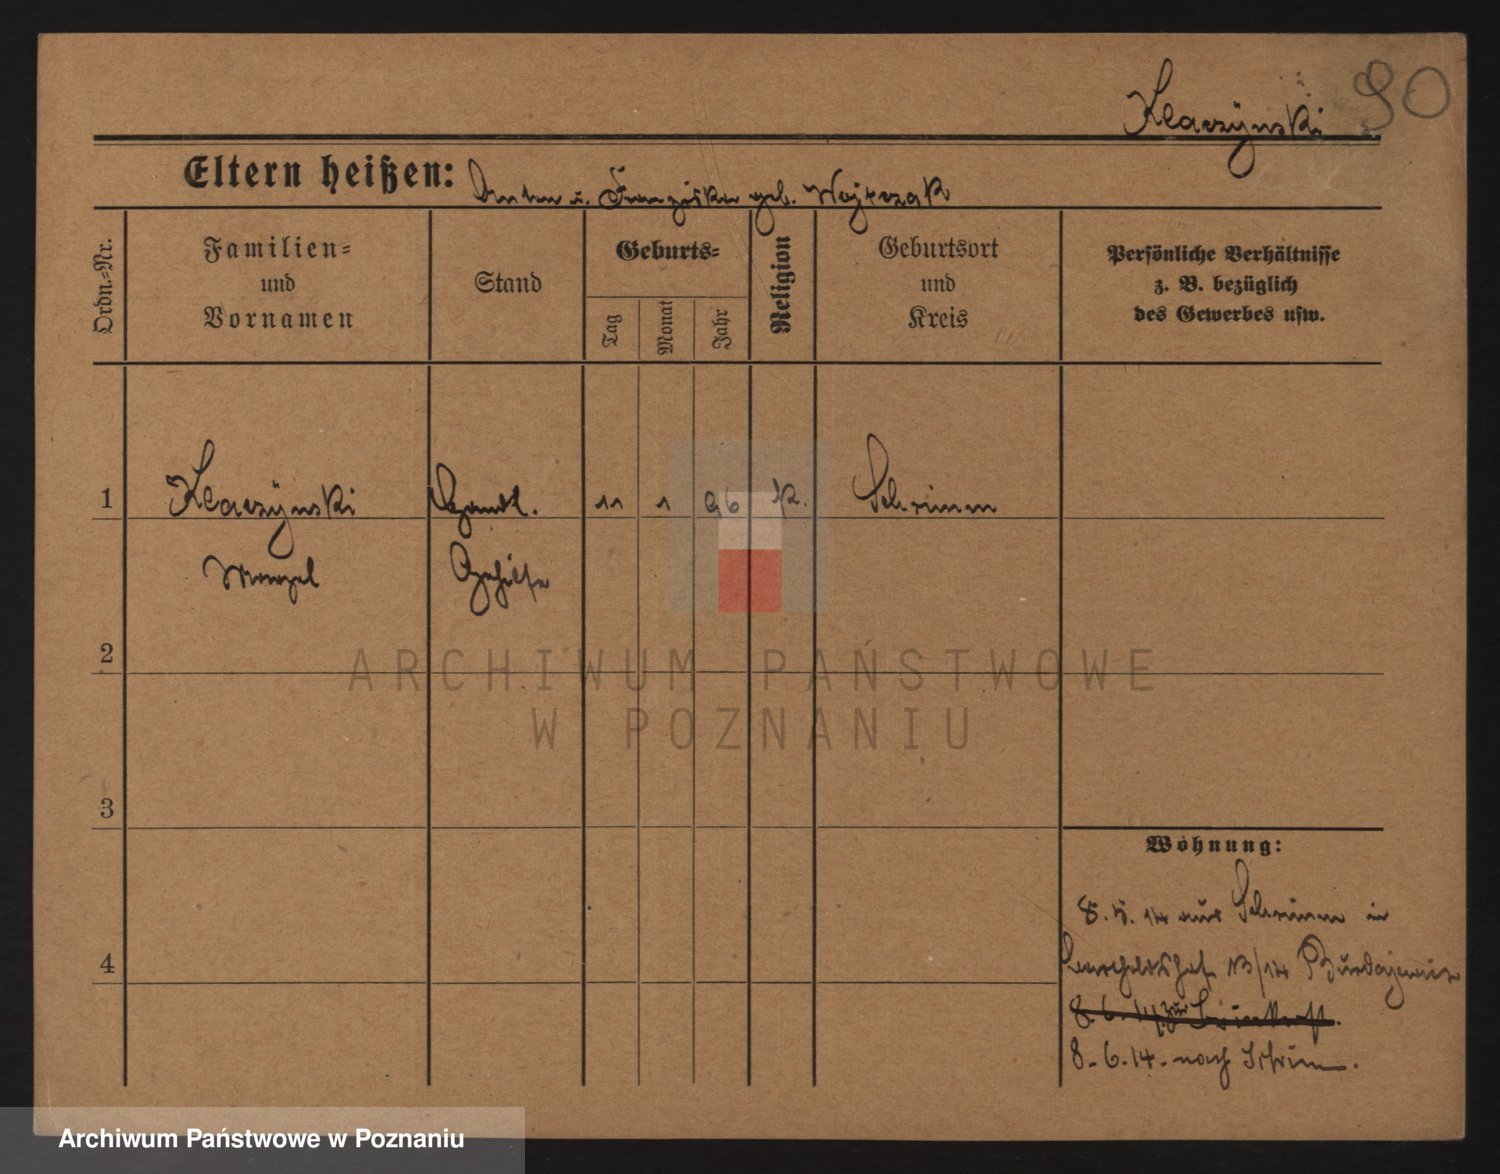 90
Klaczÿnski
Eltern heißen: Anton u. Franziska geb. Wojtczak
Ordn.=Nr.
Familien=
und
Vornamen
Stand
Geburts=
Tag
Monat
Jahr
Religion
Geburtsort
und
Kreis
Persönliche Verhältnisse
z. B. bezüglich
des Gewerbes usw.
1
Klaczÿnski
Handl.
11 1 96 K.
Schrimm
Wenzel
Gehilfe
2
ARCHIWUM PAŃSTWOWE
W POZNANIU
3
Wohnung:
8. 5. 14 aus Schrimm in
13/14
4
8. 6. 14. zur
8. 6. 14. nach Schrimm.
Archiwum Państwowe w Poznaniu